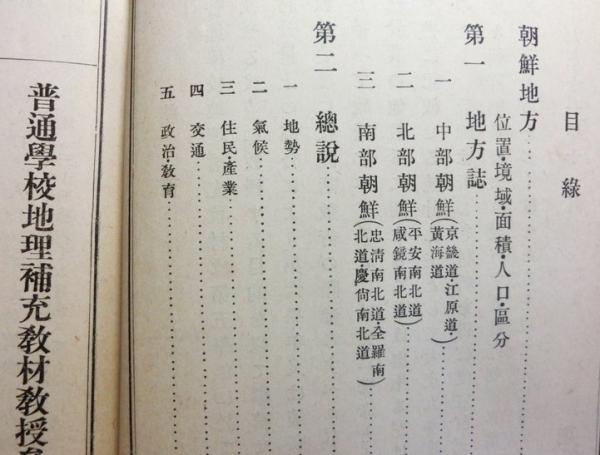 目錄
朝鮮地方
位置・境域・面積・人口・區分
第一 地方誌
一 中部朝鮮(京畿道・江原道・黃海道)
二 北部朝鮮(平安南北道 咸鏡南北道)
三 南部朝鮮(忠淸南北道・全羅南北道・慶尙南北道)
第二 總說
一 地勢
二 氣候
三 住民・產業
四 交通
五 政治敎育
普通學校地理補充敎材敎授